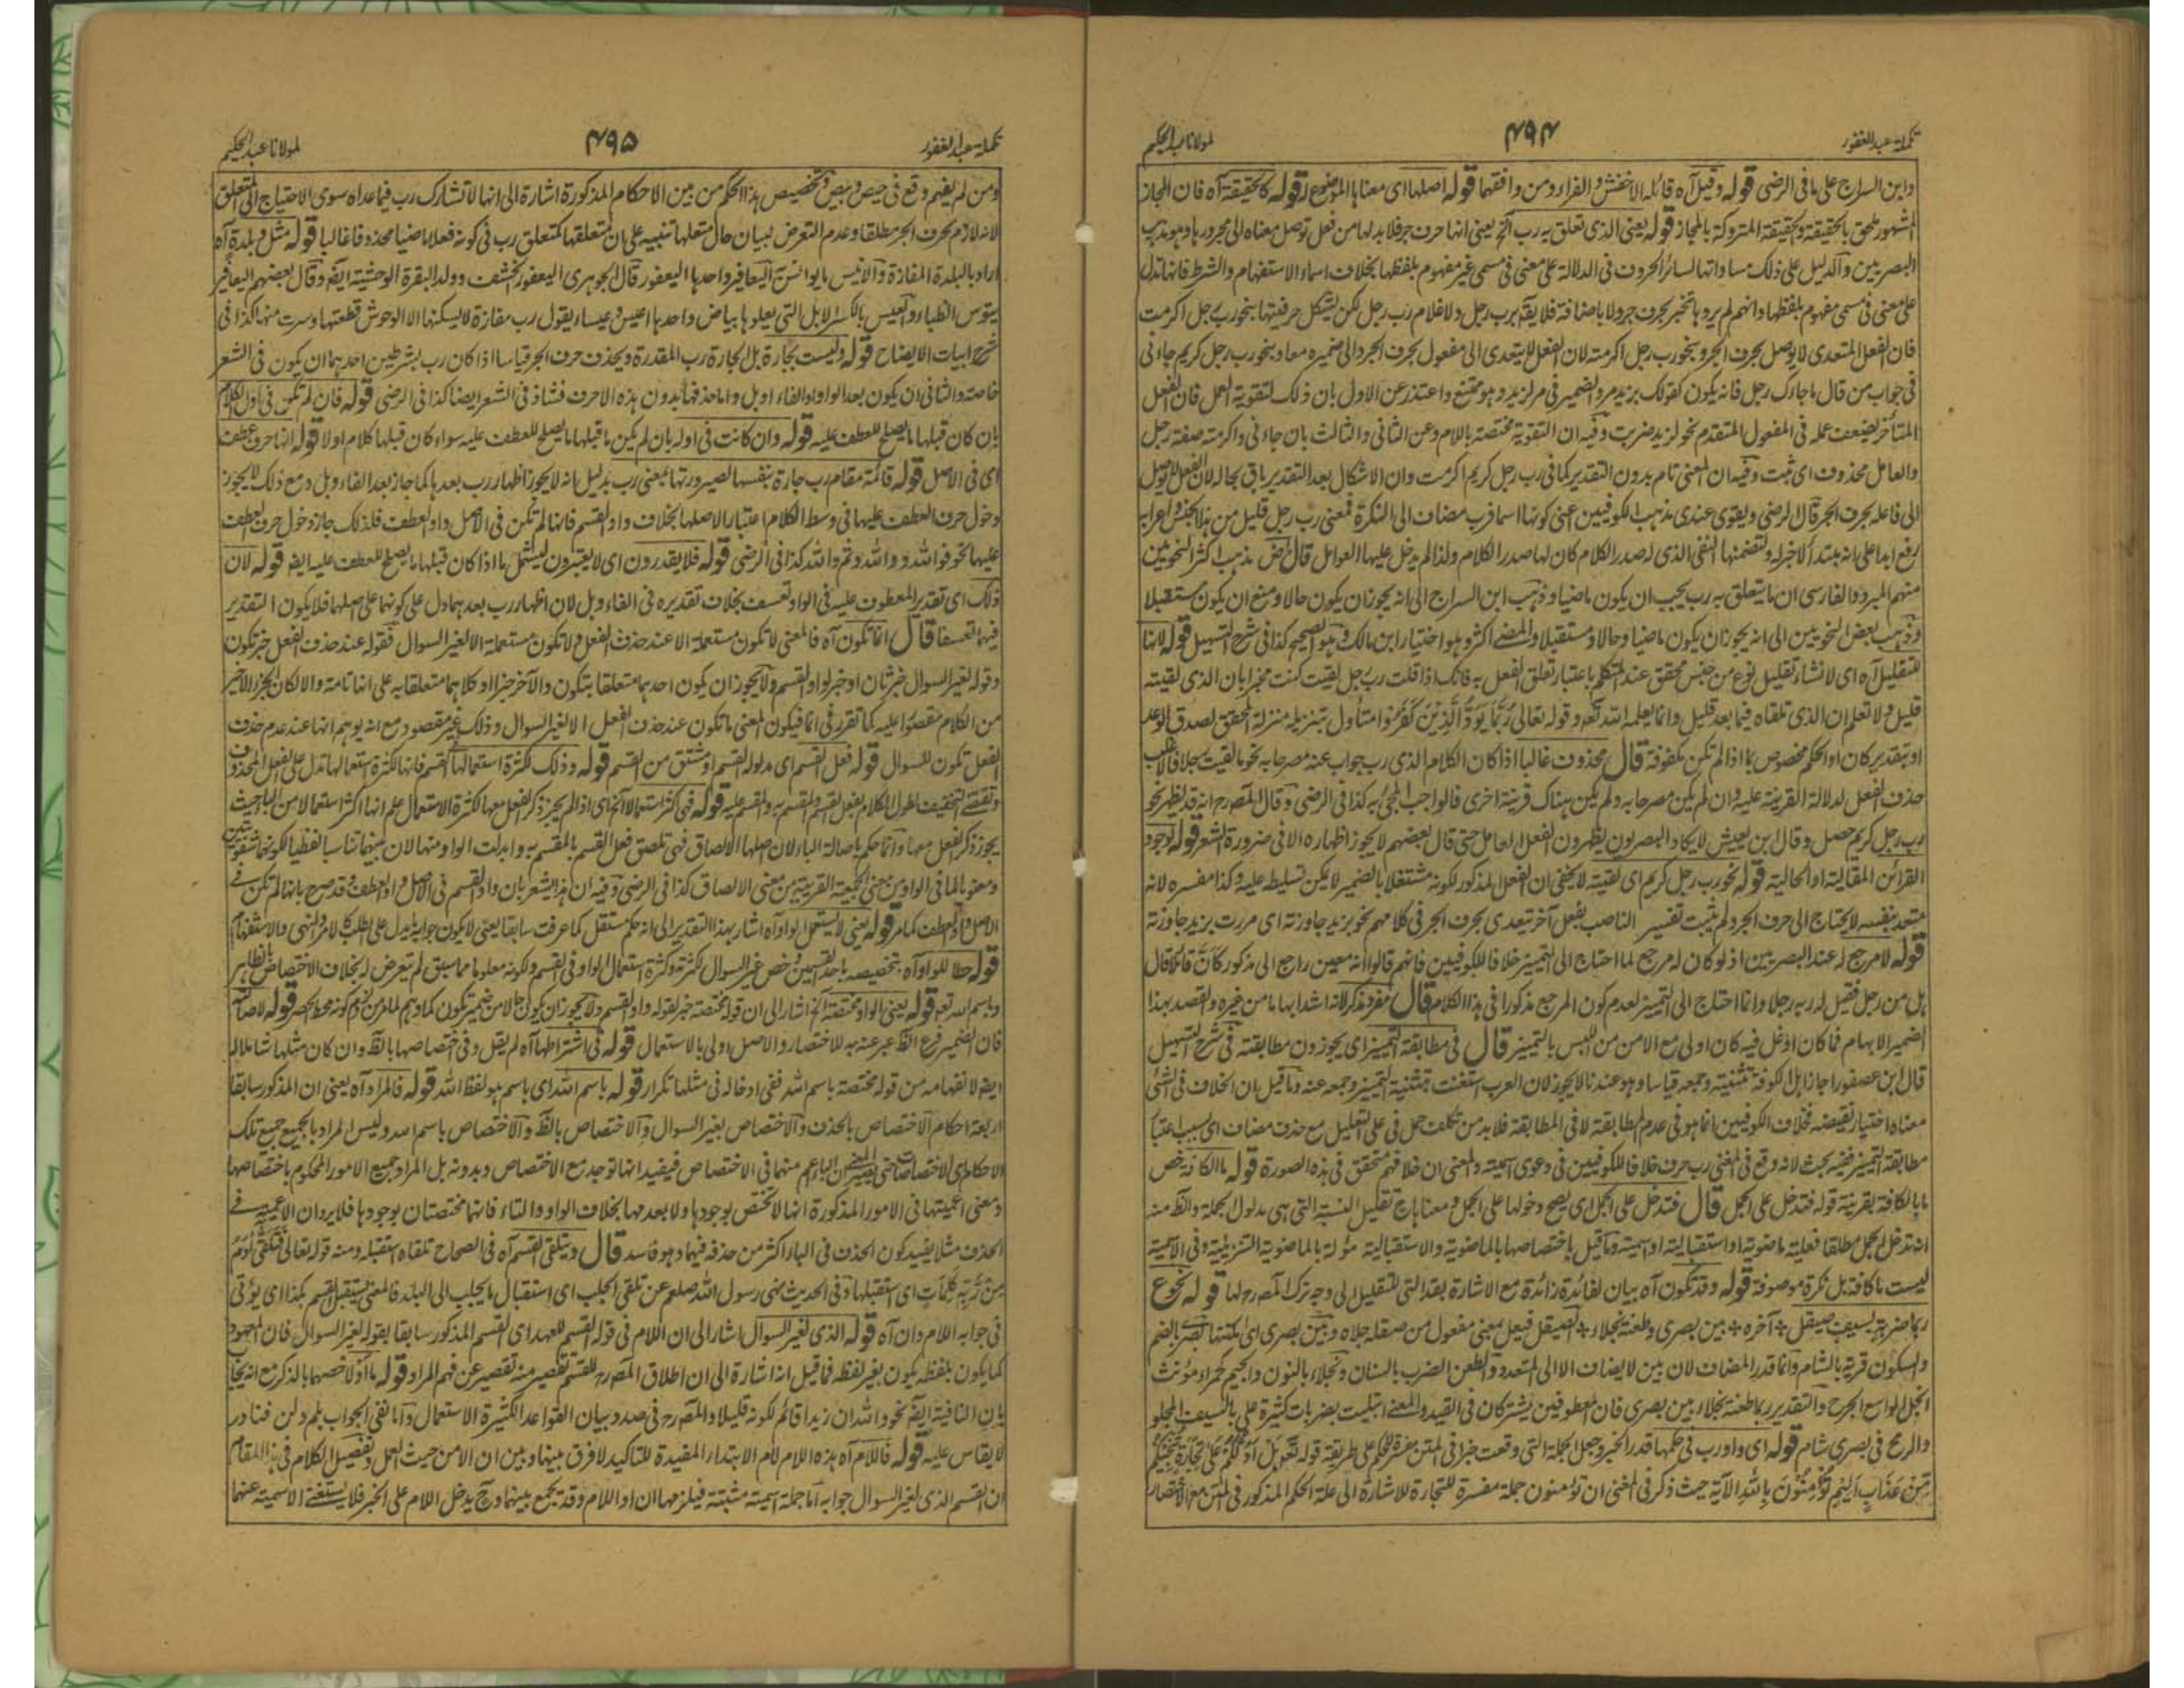 تكملة عبد الغفور
۴۹۴
لمولانا عبد الحكيم
وابن السراج على ما فى الرضى قوله وقيل آه قائله الاخفش والفراء ومن وافقهما قوله اصلها اى معناها الموضوع له قوله كالحقيقة آه فان المجاز
المشهور ملحق بالحقيقة والحقيقة المتروكة بالمجاز قوله يعنى الذى تعلق به رب آلخ يعنى انها حرف جر فلا بد لها من فعل توصل معناه الى مجرورها وهو مذهب
البصريين والدليل على ذلك مساواتها لسائر الحروف فى الدلالة على معنى فى مسمى غير مفهوم بلفظها بخلاف اسماء الاستفهام والشرط فانها تدل
على معنى فى مسمى مفهوم بلفظها وانهم لم يردوا بحرف جر ولا باضافة فلا يقه برب رجل ولا غلام رب رجل لكن يشكل حرفيتها بنحو رب رجل اكرمت
فان الفعل المتعدى لا يوصل بحرف الجر وبنحو رب رجل اكرمته لان الفعل لا يتعدى الى مفعول بحرف الجر والى ضميره معا وبنحو رب رجل كريم جاءنى
فى جواب من قال ما جاءك رجل فانه يكون كقولك بزيد مر والضمير فى مر لزيد وهو ممتنع واعتذر عن الاول بان ذلك لتقوية العمل فان الفعل
المتأخر يضعف عمله فى المفعول المتقدم نحو لزيد ضربت وفيه ان التقوية مختصة باللام وعن الثانى والثالث بان جاءنى واكرمته صفة رجل
والعامل محذوف اى ثبت وفيه ان المعنى تام بدون التقدير كما فى رب رجل كريم اكرمت وان الاشكال بعد التقدير باق بحاله لان الفعل لا يوصل
الى فاعله بحرف الجر قال الرضى ويقوى عندى مذهب الكوفيين اعنى كونها اسما فرب مضاف الى النكرة فمعنى رب رجل قليل من هذا الجنس واعرابه
رفع ابدا على انه مبتدأ لا خبر له ولتضمنها النفى الذى له صدر الكلام كان لها صدر الكلام ولذا لم يدخل عليها العوامل قال الرض مذهب اكثر النحويين
منهم المبرد والفارسى ان ما يتعلق به رب يجب ان يكون ماضيا وذهب ابن السراج الى انه يجوز ان يكون حالا ومنع ان يكون مستقبلا
وذهب بعض النحويين الى انه يجوز ان يكون ماضيا وحالا ومستقبلا والمضى اكثر وهو اختيار ابن مالك وهو الصحيح كذا فى شرح التسهيل قوله لانها
للتقليل آه اى لانشاء تقليل نوع من جنس محقق عند المتكلم باعتبار تعلق الفعل به فانك اذا قلت رب رجل لقيت كنت مخبرا بان الذى لقيته
قليل ولا تعلم ان الذى تلقاه فيما بعد قليل وانما يعلمه الله تعه وقوله تعالى رُبَمَا يَوَدُّ الَّذِيْنَ كَفَرُوْا متأول بتنزيله منزلة المحقق لصدق الوعد
او بتقدير كان او الحكم مخصوص بما اذا لم تكن مكفوفة قال محذوف غالبا اذا كان الكلام الذى رب جواب عنه مصرحا به نحو ما لقيت رجلا فالاغلب
حذف الفعل لدلالة القرينة عليه وان لم يكن مصرحا به ولم يكن هناك قرينة اخرى فالواجب المجئ به كذا فى الرضى وقال المصرح انه قد يظهر نحو
رب رجل كريم حصل وقال ابن يعيش لا يكاد البصريون يظهرون الفعل العامل حتى قال بعضهم لا يجوز اظهاره الا فى ضرورة الشعر قوله لوجود
القرائن المقالية او الحالية قوله نحو رب رجل كريم اى لقيته لا يخفى ان الفعل المذكور لكونه مشتغلا بالضمير لا يمكن تسليطه عليه وكذا مفسره لانه
متعد بنفسه لا يحتاج الى حرف الجر ولم يثبت تفسير الناصب بفعل آخر تعدى بحرف الجر فى كلامهم نحو بزيد جاوزته اى مررت بزيد جاوزته
قوله لا مرجع له عند البصريين اذ لو كان له مرجع لما احتاج الى التمييز خلافا للكوفيين فانهم قالوا انه معين راجع الى مذكور كأن قائلا قال
هل من رجل فقيل له ربه رجلا وانما احتاج الى التمييز لعدم كون المرجع مذكورا فى هذا الكلام قال مفرد مذكر لانه اشد ابهاما من غيره والقصد بهذا
الضمير الابهام فما كان اوغل فيه كان اولى مع الامن من اللبس بالتمييز قال فى مطابقة التمييز اى يجوزون مطابقته فى شرح التسهيل
قال ابن عصفور اجاز اهل الكوفة تثنيته وجمعه قياسا وهو عندنا لا يجوز لان العرب استغنت بتثنية التمييز وجمعه عنه وما قيل بان الخلاف فى الشئ
معناه اختيار نقيضه فخلاف الكوفيين انما هو فى عدم المطابقة لا فى المطابقة فلا بد من تكلف حمل فى على التعليل مع حذف مضاف اى بسبب اعتبار
مطابقة التمييز ففيه بحث لانه وقع فى المغنى رب حرف خلافا للكوفيين فى دعوى اسميته والمعنى ان خلافهم متحقق فى هذه الصورة قوله ما الكافة خص
ما بالكافة بقرينة قوله فتدخل على الجمل قال فتدخل على الجمل اى يصح دخولها على الجمل ومعناها ح تقليل النسبة التى هى مدلول الجملة والظ منه
انه تدخل الجمل مطلقا فعلية ماضوية او استقبالية او اسمية وما قيل باختصاصها بالماضوية والاستقبالية مؤلة بالماضوية التنزيلية وفى الاسمية
ليست ما كافة بل نكرة موصوفة قوله وقد تكون آه بيان لفائدة زائدة مع الاشارة بقد التى للتقليل الى وجه ترك المصرح لها قوله نحو ع
ربما ضربة بسيف صيقل * آخره * بين بصرى وطعنة نجلاء * الصيقل فيعل بمعنى مفعول من صقله جلاه وبين بصرى اى امكنتها بصرى بالضم
والسكون قرية بالشام وانما قدر المضاف لان بين لا يضاف الا الى المتعدد والطعن الضرب بالسنان ونجلاء بالنون والجيم كحمراء مؤنث
انجل الواسع الجرح والتقدير ربما طعنة نجلاء بين بصرى فان المعطوفين يشتركان فى القيد والمعنى ابتليت بضربات كثيرة على بالسيف المجلو
والرمح فى بصرى شام قوله اى واو رب فى حكمها قدر الخبر وجعل الجملة التى وقعت خبرا فى المتن مفسرة للحكم على طريقة قوله تعو هَلْ اَدُلُّكُمْ عَلٰى تِجَارَةٍ تُنْجِيْكُمْ
مِّنْ عَذَابٍ اَلِيْمٍ تُؤْمِنُوْنَ بِاللهِ الآية حيث ذكر فى المغنى ان تؤمنون جملة مفسرة للتجارة للاشارة الى علة الحكم المذكور فى المتن مع الاختصار
تكملة عبد الغفور
۴۹۵
لمولانا عبد الحكيم
ومن لم يفهم وقع فى حيص وبيص وتخصيص هذا الحكم من بين الاحكام المذكورة اشارة الى انها لا تشارك رب فيما عداه سوى الاحتياج الى المتعلق
لانه لازم لحرف الجر مطلقا وعدم التعرض لبيان حال متعلقها تنبيه على ان متعلقها كمتعلق رب فى كونه فعلا ماضيا محذوفا غالبا قوله مثل وبلدة آه
اراد بالبلدة المفازة والانيس ما يوانس به اليعافير واحدها اليعفور قال الجوهرى اليعفور الخشف وولد البقرة الوحشية ايضه وقال بعضهم اليعافير
تيوس الظباء والعيس بالكسر الابل التى يعلوها بياض واحدها اعيس وعيساء يقول رب مفازة لا يسكنها الا الوحوش قطعتها وسرت منها كذا فى
شرح ابيات الايضاح قوله وليست بجارة بل الجارة رب المقدرة ويحذف حرف الجر قياسا اذا كان رب بشرطين احدهما ان يكون فى الشعر
خاصة والثانى ان يكون بعد الواو او الفاء او بل واما حذفها بدون هذه الاحرف فشاذ فى الشعر ايضا كذا فى الرضى قوله فان لم تكن فى اول الكلام
بان كان قبلها ما يصلح للعطف عليه قوله وان كانت فى اوله بان لم يكن ما قبلها ما يصلح للعطف عليه سواء كان قبلها كلام اولا قوله انها حرف عطف
اى فى الاصل قوله قائمة مقام رب جارة بنفسها لصيرورتها بمعنى رب بدليل انه لا يجوز اظهار رب بعدها كما جاز بعد الفاء وبل ومع ذلك لا يجوز
دخول حرف العطف عليها فى وسط الكلام اعتبارا لاصلها بخلاف واو القسم فانها لم تكن فى الاصل واو العطف فلذلك جاز دخول حرف العطف
عليها نحو فوالله ووالله وثم والله كذا فى الرضى قوله فلا يقدرون اى لا يعتبرون ليشمل ما اذا كان قبلها ما يصلح للعطف عليه ايضه قوله لان
ذلك اى تقدير المعطوف عليه فى الواو تعسف بخلاف تقديره فى الفاء وبل لان اظهار رب بعدهما دل على كونهما على اصلها فلا يكون التقدير
فيهما تعسفا قال انما تكون آه فالمعنى لا تكون مستعملة الا عند حذف الفعل ولا تكون مستعملة الا لغير السوال فقوله عند حذف الفعل خبر تكون
وقوله لغير السوال خبر ثان او خبر لواو القسم ولا يجوز ان يكون احدهما متعلقا بتكون والآخر خبرا او كلاهما متعلقا به على انها تامة والا لكان الجزء الاخير
من الكلام مقصورا عليه كما تقرر فى انما فيكون المعنى ما تكون عند حذف الفعل الا لغير السوال وذلك غير مقصود مع انه يوهم انها عند عدم حذف
الفعل تكون للسوال قوله فعل القسم اى مدلوله القسم او مشتق من القسم قوله وذلك لكثرة استعمالها القسم فانها لكثرة استعمالها تدل على الفعل المحذوف
وتقتضى التخفيف لطول الكلام بفعل القسم والمقسم به والمقسم عليه قوله فهى اكثر استعمالا آلخ اى اذا لم يجز ذكر الفعل معها لكثرة الاستعمال علم انها اكثر استعمالا من الباء حيث
يجوز ذكر الفعل معها وانما حكم باصالة الباء لان اصلها الالصاق فهى تلصق فعل القسم بالمقسم به وابدلت الواو منها لان بينهما تناسبا لفظيا لكونهما شفويتين
ومعنويا لما فى الواو من معنى الجمعية القريبة من معنى الالصاق كذا فى الرضى وفيه ان هذا يشعر بان واو القسم فى الاصل واو العطف وقد صرح بانها لم تكن فى
الاصل واو العطف كما مر قوله يعنى لا يستعمل الواو آه اشار بهذا التقدير الى انه حكم مستقل كما عرفت سابقا يعنى لا يكون جوابه ما يدل على الطلب كالامر والنهى والاستفهام
قوله حطا للواو آه بتخصيصه باحد القسمين وخص غير السوال لكثرته وكثرة استعمال الواو فى القسم ولكونه معلوما مما سبق لم يتعرض له بخلاف الاختصاص بالظاهر
وباسم الله تعه قوله يعنى الواو مختصة آلخ اشار الى ان قوله مختصة خبر لقوله واو القسم ولا يجوز ان يكون حالا من ضمير تكون كما وهم لما مر من لزوم كونه محط الحصر قوله لاصالته
فان الضمير فرع الظ عبر عنه به للاختصار والاصل اولى بالاستعمال قوله فى اشتراطها آه لم يقل وفى اختصاصها بالظ وان كان مثلها شاملا له
ايضه لانفهامه من قوله مختصة باسم الله ففى ادخاله فى مثلها تكرار قوله باسم الله اى باسم هو لفظ الله قوله فالمراد آه يعنى ان المذكور سابقا
اربعة احكام الاختصاص بالحذف والاختصاص بغير السوال والاختصاص بالظ والاختصاص باسم الله وليس المراد بالجميع جميع تلك
الاحكام اى الاختصاصات حتى يصير المعنى ان الباء اعم منهما فى الاختصاص فيفيد انها توجد مع الاختصاص وبدونه بل المراد جميع الامور المحكوم باختصاصها
ومعنى اعميتها فى الامور المذكورة انها لا تختص بوجودها ولا بعدمها بخلاف الواو والتاء فانها مختصتان بوجودها فلا يرد ان الاعمية فى
الحذف مثلا يفيد كون الحذف فى الباء اكثر من حذفه فيهما وهو فاسد قال ويتلقى القسم آه فى الصحاح تلقاه استقبله ومنه قوله تعالى فَتَلَقّٰى اٰدَمُ
مِنْ رَّبِّهٖ كَلِمَاتٍ اى استقبلها وفى الحديث نهى رسول الله صلعم عن تلقى الجلب اى استقبال ما يجلب الى البلد فالمعنى يستقبل القسم بكذا اى يؤتى
فى جوابه اللام وان آه قوله الذى لغير السوال اشار الى ان اللام فى قوله القسم للعهد اى القسم المذكور سابقا بقوله لغير السوال فان المعهود
كما يكون بلفظه يكون بغير لفظه فما قيل انه اشارة الى ان اطلاق المصرح للقسم تقصير منه تقصير عن فهم المراد قوله ما او لا خصهما بالذكر مع انه يجاب
بان النافية ايضه نحو والله ان زيدا قائم لكونه قليلا والمصرح فى صدد بيان القواعد الكثيرة الاستعمال واما نفى الجواب بلم ولن فنادر
لا يقاس عليه قوله فاللام آه هذه اللام لام الابتداء المفيدة للتاكيد لا فرق بينها وبين ان الا من حيث العمل وتفصيل الكلام فى هذا المقام
ان القسم الذى لغير السوال جوابه اما جملة اسمية مثبتة فيلزمها ان او اللام وقد يجمع بينهما وح يدخل اللام على الخبر فلا يستغنى الاسمية عنهما